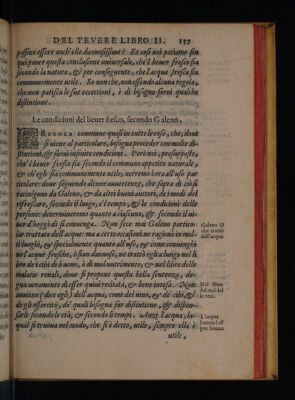 DEL TEVERE LIBRO II. 137
possino essere anch'elle dannosissime? Et così noi potiamo sin
qui porre questa conclusione universale, che'l bever fresco sia
secondo la natura, & per conseguente, che l'acqua fresca sia
communemente utile. Se non che, non essendo alcuna regola,
che non patisca le sue eccettioni, è di bisogno farvi qualche
distintione.
Le condicioni del bever fresco, secondo Galeno.
REGOLA commune quasi in tutte le cose, che, dove
si viene al particolare, bisogna proceder con molte di-
stintioni, & servi infinite condicioni. Però noi, presupposto,
che'l bever fresco sia secondo il commune appetito naturale,
& ch'egli sia communemente utile, verremo hora all'uso par-
ticolare dove seguendo alcune avvertenze, che sopra di ciò si
raccolgono da Galeno, & da altri buoni auttori, de i modi del
rifrescare, secondo il luogo, e'l tempo, & le condicioni delle
persone determineremo quanto a ciascuno, & secondo il vi-
ver d'hoggi dì si convenga. Non fece mai Galeno partico-
lar trattato dell'acqua: ma a certe occasioni ne ragionò in mol-
ti luoghi, & specialmente quanto all'uso, & come convenghi
no l'acque fresche, ò sian dannose, ne trattò egli a lungo nel li
bro de i cibi di buono, ò di mal nutrimento, & nel libro delle
malatie renali, dove si propone questa bella sentenza, de-
gna veramente di esser quivi recitata, & bene intesa. Non
avviene (dice egli) dell'acqua, come del vino, & de' cibi, &
de gli essercitij, de' quali bisogna far distintione, & dispen-
sarli secondo le età, & secondo li tempi. Anzi l'acqua, la-
qual si truova nel modo, che si è detto, utile, sempre ella è
utile,
Galeno di
che trattò
dell'acqua
Nel libro
del mal del
le reni.
L'acqua
buona è sē
pre buona